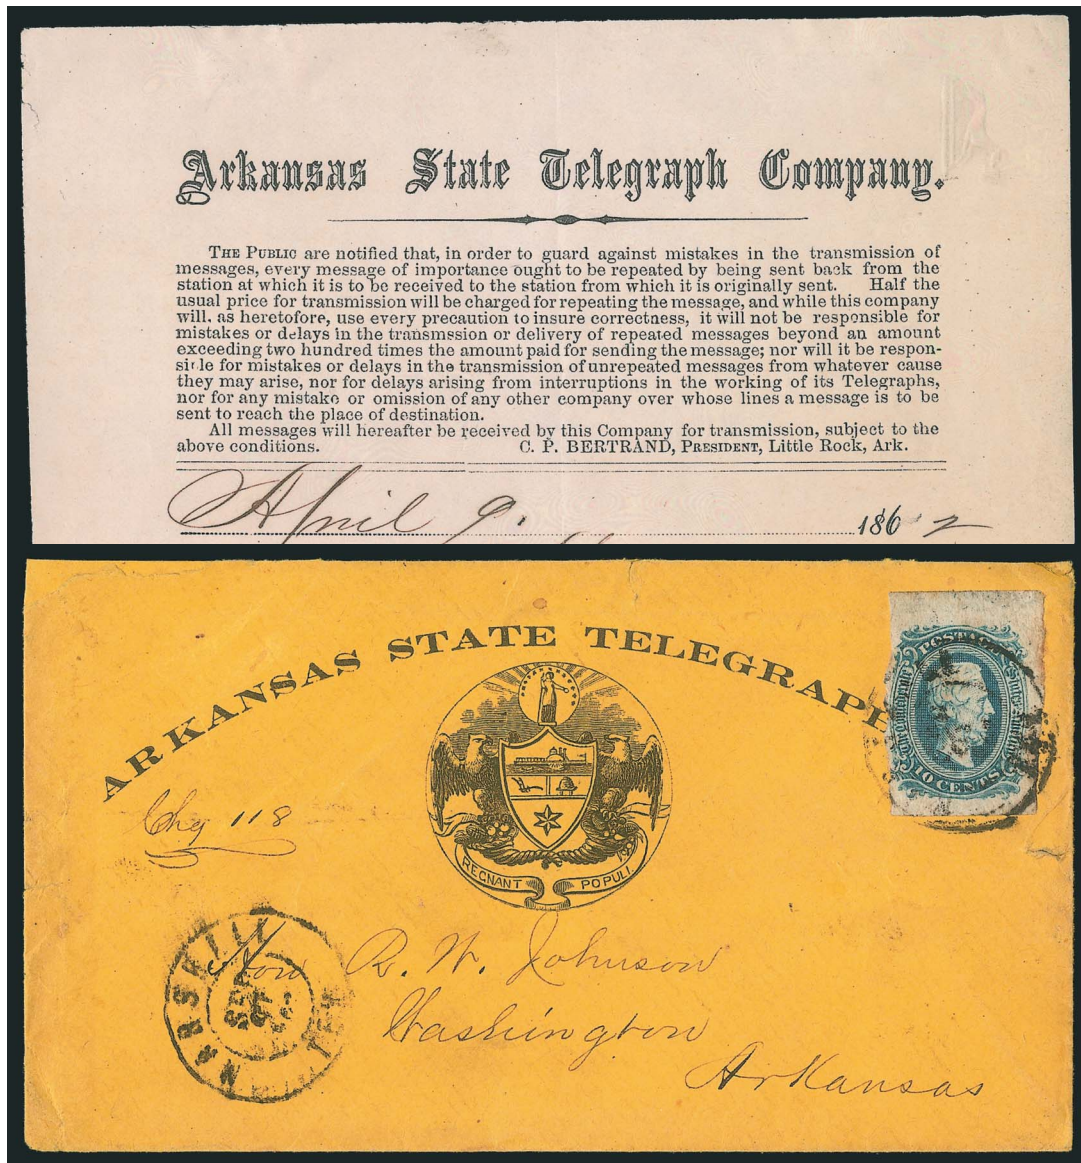 Arkansas State Telegraph Company.
THE PUBLIC are notified that, in order to guard against mistakes in the transmission of
messages, every message of importance ought to be repeated by being sent back from the
station at which it is to be received to the station from which it is originally sent. Half the
usual price for transmission will be charged for repeating the message, and while this company
will. as heretofore, use every precaution to insure correctness, it will not be responsible for
mistakes or delays in the transmssion or delivery of repeated messages beyond an amount
exceeding two hundred times the amount paid for sending the message; nor will it be respon-
sible for mistakes or delays in the transmission of unrepeated messages from whatever cause
they may arise, nor for delays arising from interruptions in the working of its Telegraphs,
nor for any mistake or omission of any other company over whose lines a message is to be
sent to reach the place of destination.
All messages will hereafter be received by this Company for transmission, subject to the
above conditions. C. P. BERTRAND, PRESIDENT, Little Rock, Ark.
April 9. 1862
ARKANSAS STATE TELEGRAPH
POSTAGE
10 CENTS
Chg 118
REGNANT POPULI.
Hon R. W. Johnson
Washington
Arkansas